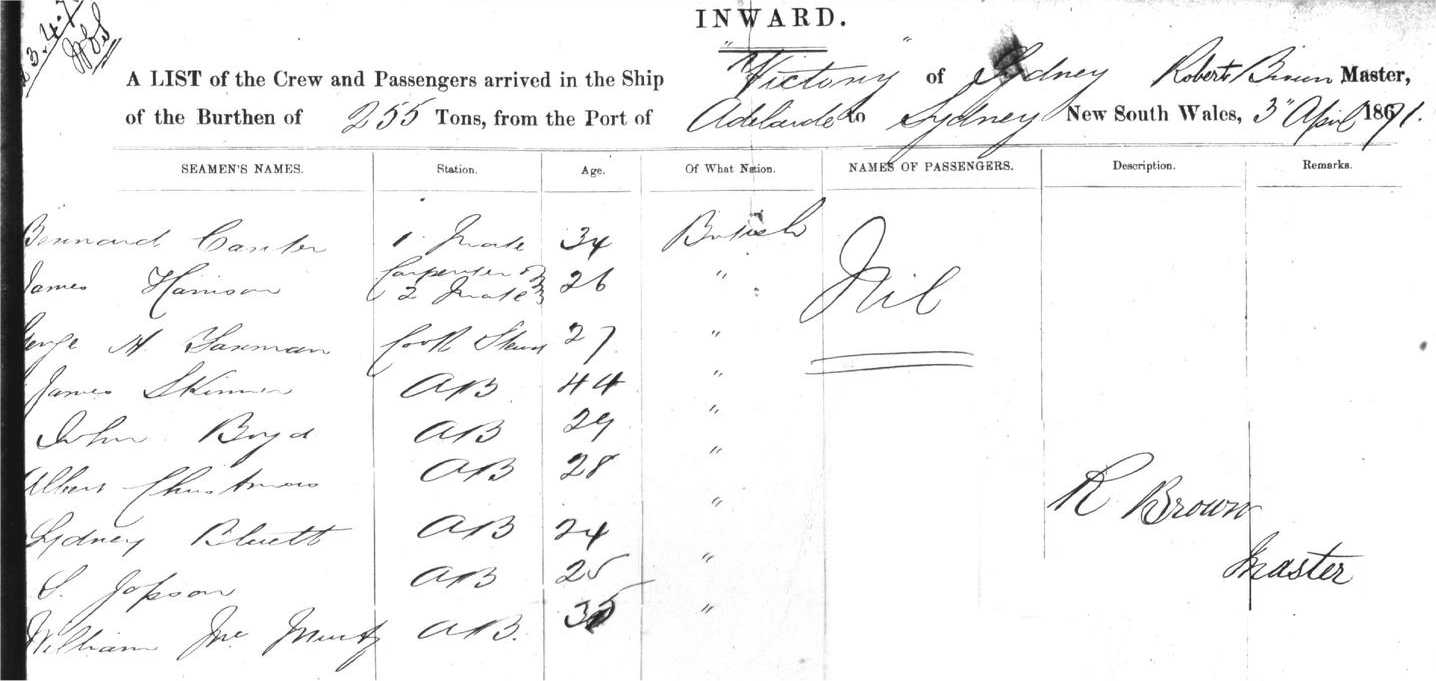 INWARD.
A LIST of the Crew and Passengers arrived in the Ship "Victory" of Sydney Robert Brown Master,
of the Burthen of 255 Tons, from the Port of Adelaide to Sydney New South Wales, 3" April 1871.
SEAMEN'S NAMES. Station. Age. Of What Nation. NAMES OF PASSENGERS. Description. Remarks.
Bennard 1. Mate 34 British Nil
James Harrison Carpenter & 2 Mate 26 "
George H 27 "
James Skinner AB 44 "
John Boyd AB 29 "
Albert Christmas AB 28 "
Sydney Bluett AB 24 "
S. Jopson AB 25 "
William Mc AB. 35 "
R Brown
Master